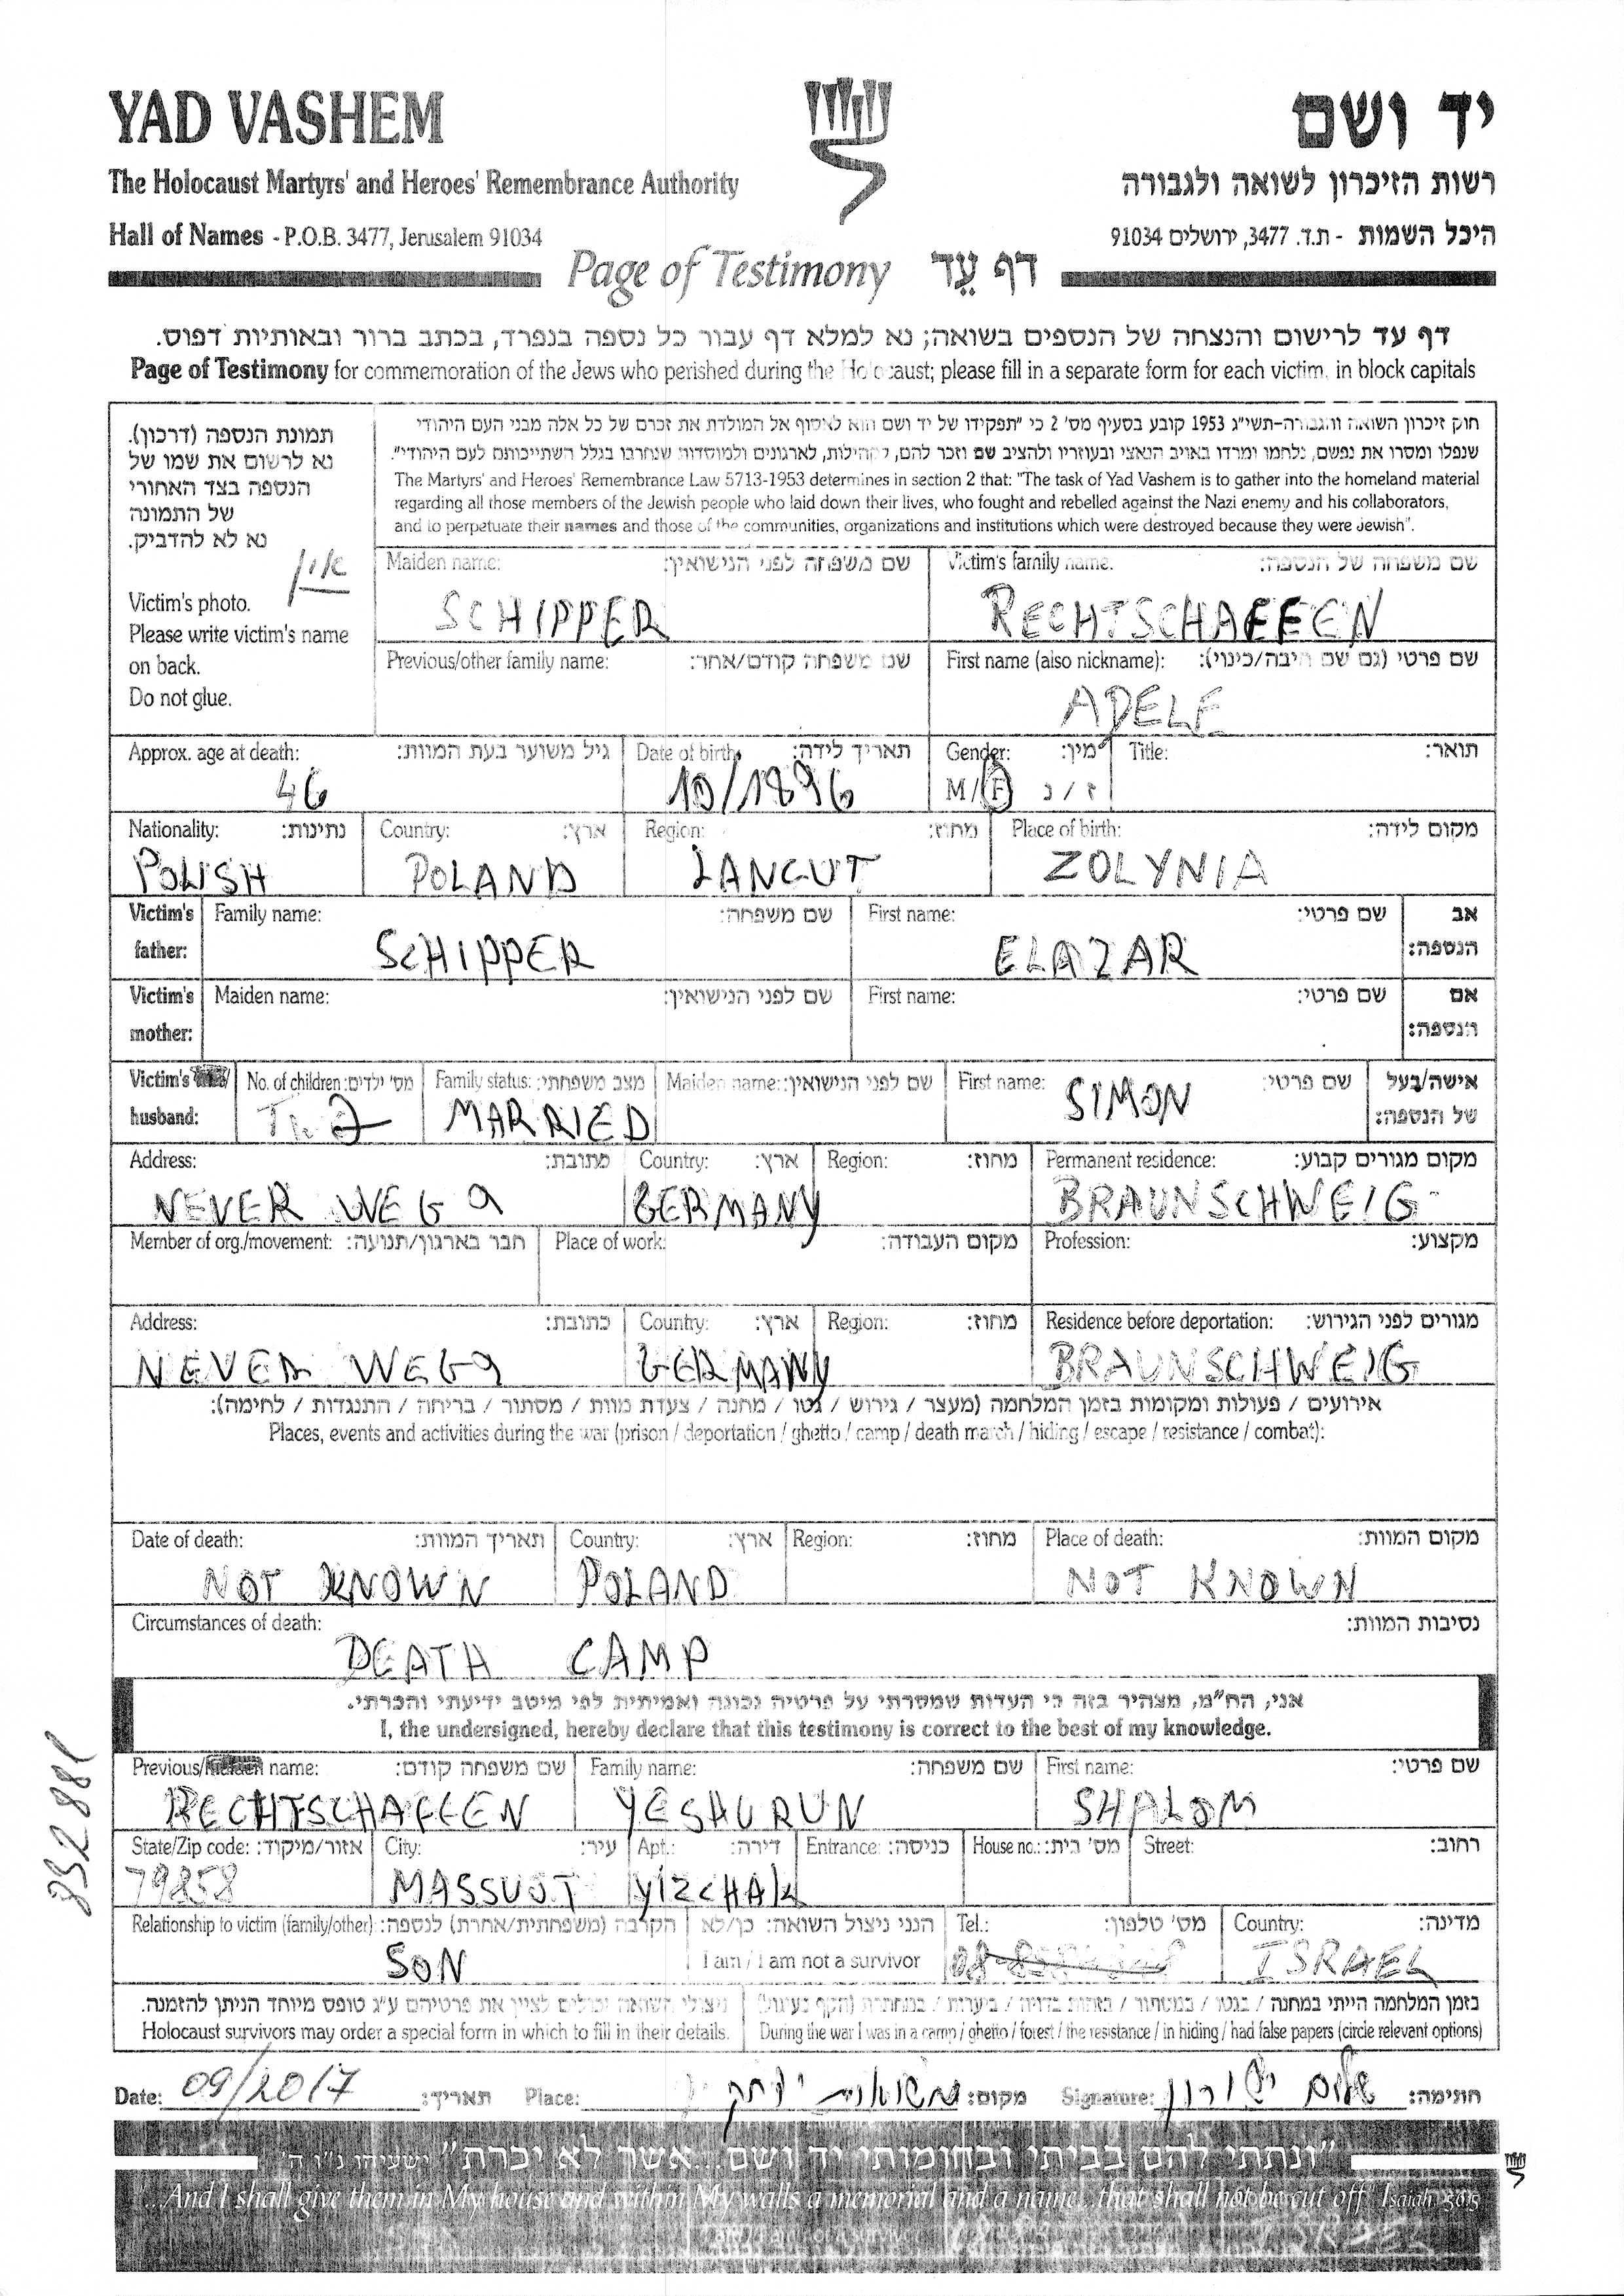 YAD VASHEM
יד ושם
The Holocaust Martyrs' and Heroes' Remembrance Authority
רשות הזיכרון לשואה ולגבורה
Hall of Names - P.O.B. 3477, Jerusalem 91034
היכל השמות - ת.ד. 3477, ירושלים 91034
Page of Testimony דף עֵד
דף עד לרישום והנצחה של הנספים בשואה; נא למלא דף עבור כל נספה בנפרד, בכתב ברור ובאותיות דפוס.
Page of Testimony for commemoration of the Jews who perished during the Holocaust; please fill in a separate form for each victim, in block capitals
תמונת הנספה (דרכון).
נא לרשום את שמו של
הנספה בצד האחורי
של התמונה
נא לא להדביק.
אין
Victim's photo.
Please write victim's name
on back.
Do not glue.
חוק זיכרון השואה והגבורה-תשי"ג 1953 קובע בסעיף מס' 2 כי "תפקידו של יד ושם הוא לאסוף אל המולדת את זכרם של כל אלה מבני העם היהודי
שנפלו ומסרו את נפשם, נלחמו ומרדו באויב הנאצי ובעוזריו ולהציב שם וזכר להם, לקהילות, לארגונים ולמוסדות שנחרבו בגלל השתייכותם לעם היהודי".
The Martyrs' and Heroes' Remembrance Law 5713-1953 determines in section 2 that: "The task of Yad Vashem is to gather into the homeland material
regarding all those members of the Jewish people who laid down their lives, who fought and rebelled against the Nazi enemy and his collaborators,
and to perpetuate their names and those of the communities, organizations and institutions which were destroyed because they were Jewish".
Maiden name: שם משפחה לפני הנישואין: Victim's family name: שם משפחה של הנספה:
SCHIPPER RECHTSCHAFFEN
Previous/other family name: שם משפחה קודם/אחר: First name (also nickname): שם פרטי (גם שם חיבה/כינוי):
ADELE
Approx. age at death: גיל משוער בעת המוות: Date of birth: תאריך לידה: Gender: מין: Title: תואר:
46 10/1896 M/F ז/נ
Nationality: נתינות: Country: ארץ: Region: מחוז: Place of birth: מקום לידה:
POLISH POLAND LANCUT ZOLYNIA
Victim's father: Family name: שם משפחה: First name: שם פרטי: אב הנספה:
SCHIPPER ELAZAR
Victim's mother: Maiden name: שם לפני הנישואין: First name: שם פרטי: אם הנספה:
Victim's husband: No. of children: מס' ילדים: Family status: מצב משפחתי: Maiden name: שם לפני הנישואין: First name: שם פרטי: אישה/בעל של הנספה:
2 MARRIED SIMON
Address: כתובת: Country: ארץ: Region: מחוז: Permanent residence: מקום מגורים קבוע:
NEVER WEG 9 GERMANY BRAUNSCHWEIG
Member of org./movement: חבר בארגון/תנועה: Place of work: מקום העבודה: Profession: מקצוע:
Address: כתובת: Country: ארץ: Region: מחוז: Residence before deportation: מגורים לפני הגירוש:
NEVER WEG 9 GERMANY BRAUNSCHWEIG
אירועים / פעולות ומקומות בזמן המלחמה (מעצר / גירוש / גטו / מחנה / צעדת מוות / מסתור / בריחה / התנגדות / לחימה):
Places, events and activities during the war (prison / deportation / ghetto / camp / death march / hiding / escape / resistance / combat):
Date of death: תאריך המוות: Country: ארץ: Region: מחוז: Place of death: מקום המוות:
NOT KNOWN POLAND NOT KNOWN
Circumstances of death: נסיבות המוות:
DEATH CAMP
אני, הח"מ, מצהיר בזה כי העדות שמסרתי על פרטיה נכונה ואמיתית לפי מיטב ידיעתי והכרתי.
I, the undersigned, hereby declare that this testimony is correct to the best of my knowledge.
Previous/ name: שם משפחה קודם: Family name: שם משפחה: First name: שם פרטי:
RECHTSCHAFFEN YESHURUN SHALOM
State/Zip code: אזור/מיקוד: City: עיר: Apt.: דירה: Entrance: כניסה: House no.: מס' בית: Street: רחוב:
79858 MASSUOT YIZCHAK
Relationship to victim (family/other): הקרבה (משפחתית/אחרת) לנספה: הנני ניצול השואה: כן/לא Tel.: מס' טלפון: Country: מדינה:
SON I am / I am not a survivor ISRAEL
ניצולי השואה יכולים לציין את פרטיהם ע"ג טופס מיוחד הניתן להזמנה. בזמן המלחמה הייתי במחנה / בגטו / במסתור / בזהות בדויה / ביערות / במחתרת (הקף בעיגול)
Holocaust survivors may order a special form in which to fill in their details. During the war I was in a camp / ghetto / forest / the resistance / in hiding / had false papers (circle relevant options)
Date: 09/2017 תאריך: Place: משואות יצחק מקום: Signature: שלום ישורון חתימה:
"ונתתי להם בביתי ובחומותי יד ושם...אשר לא יכרת" ישעיהו נ"ו ה'
"...And I shall give them in My house and within My walls a memorial and a name...that shall not be cut off" Isaiah 56:5